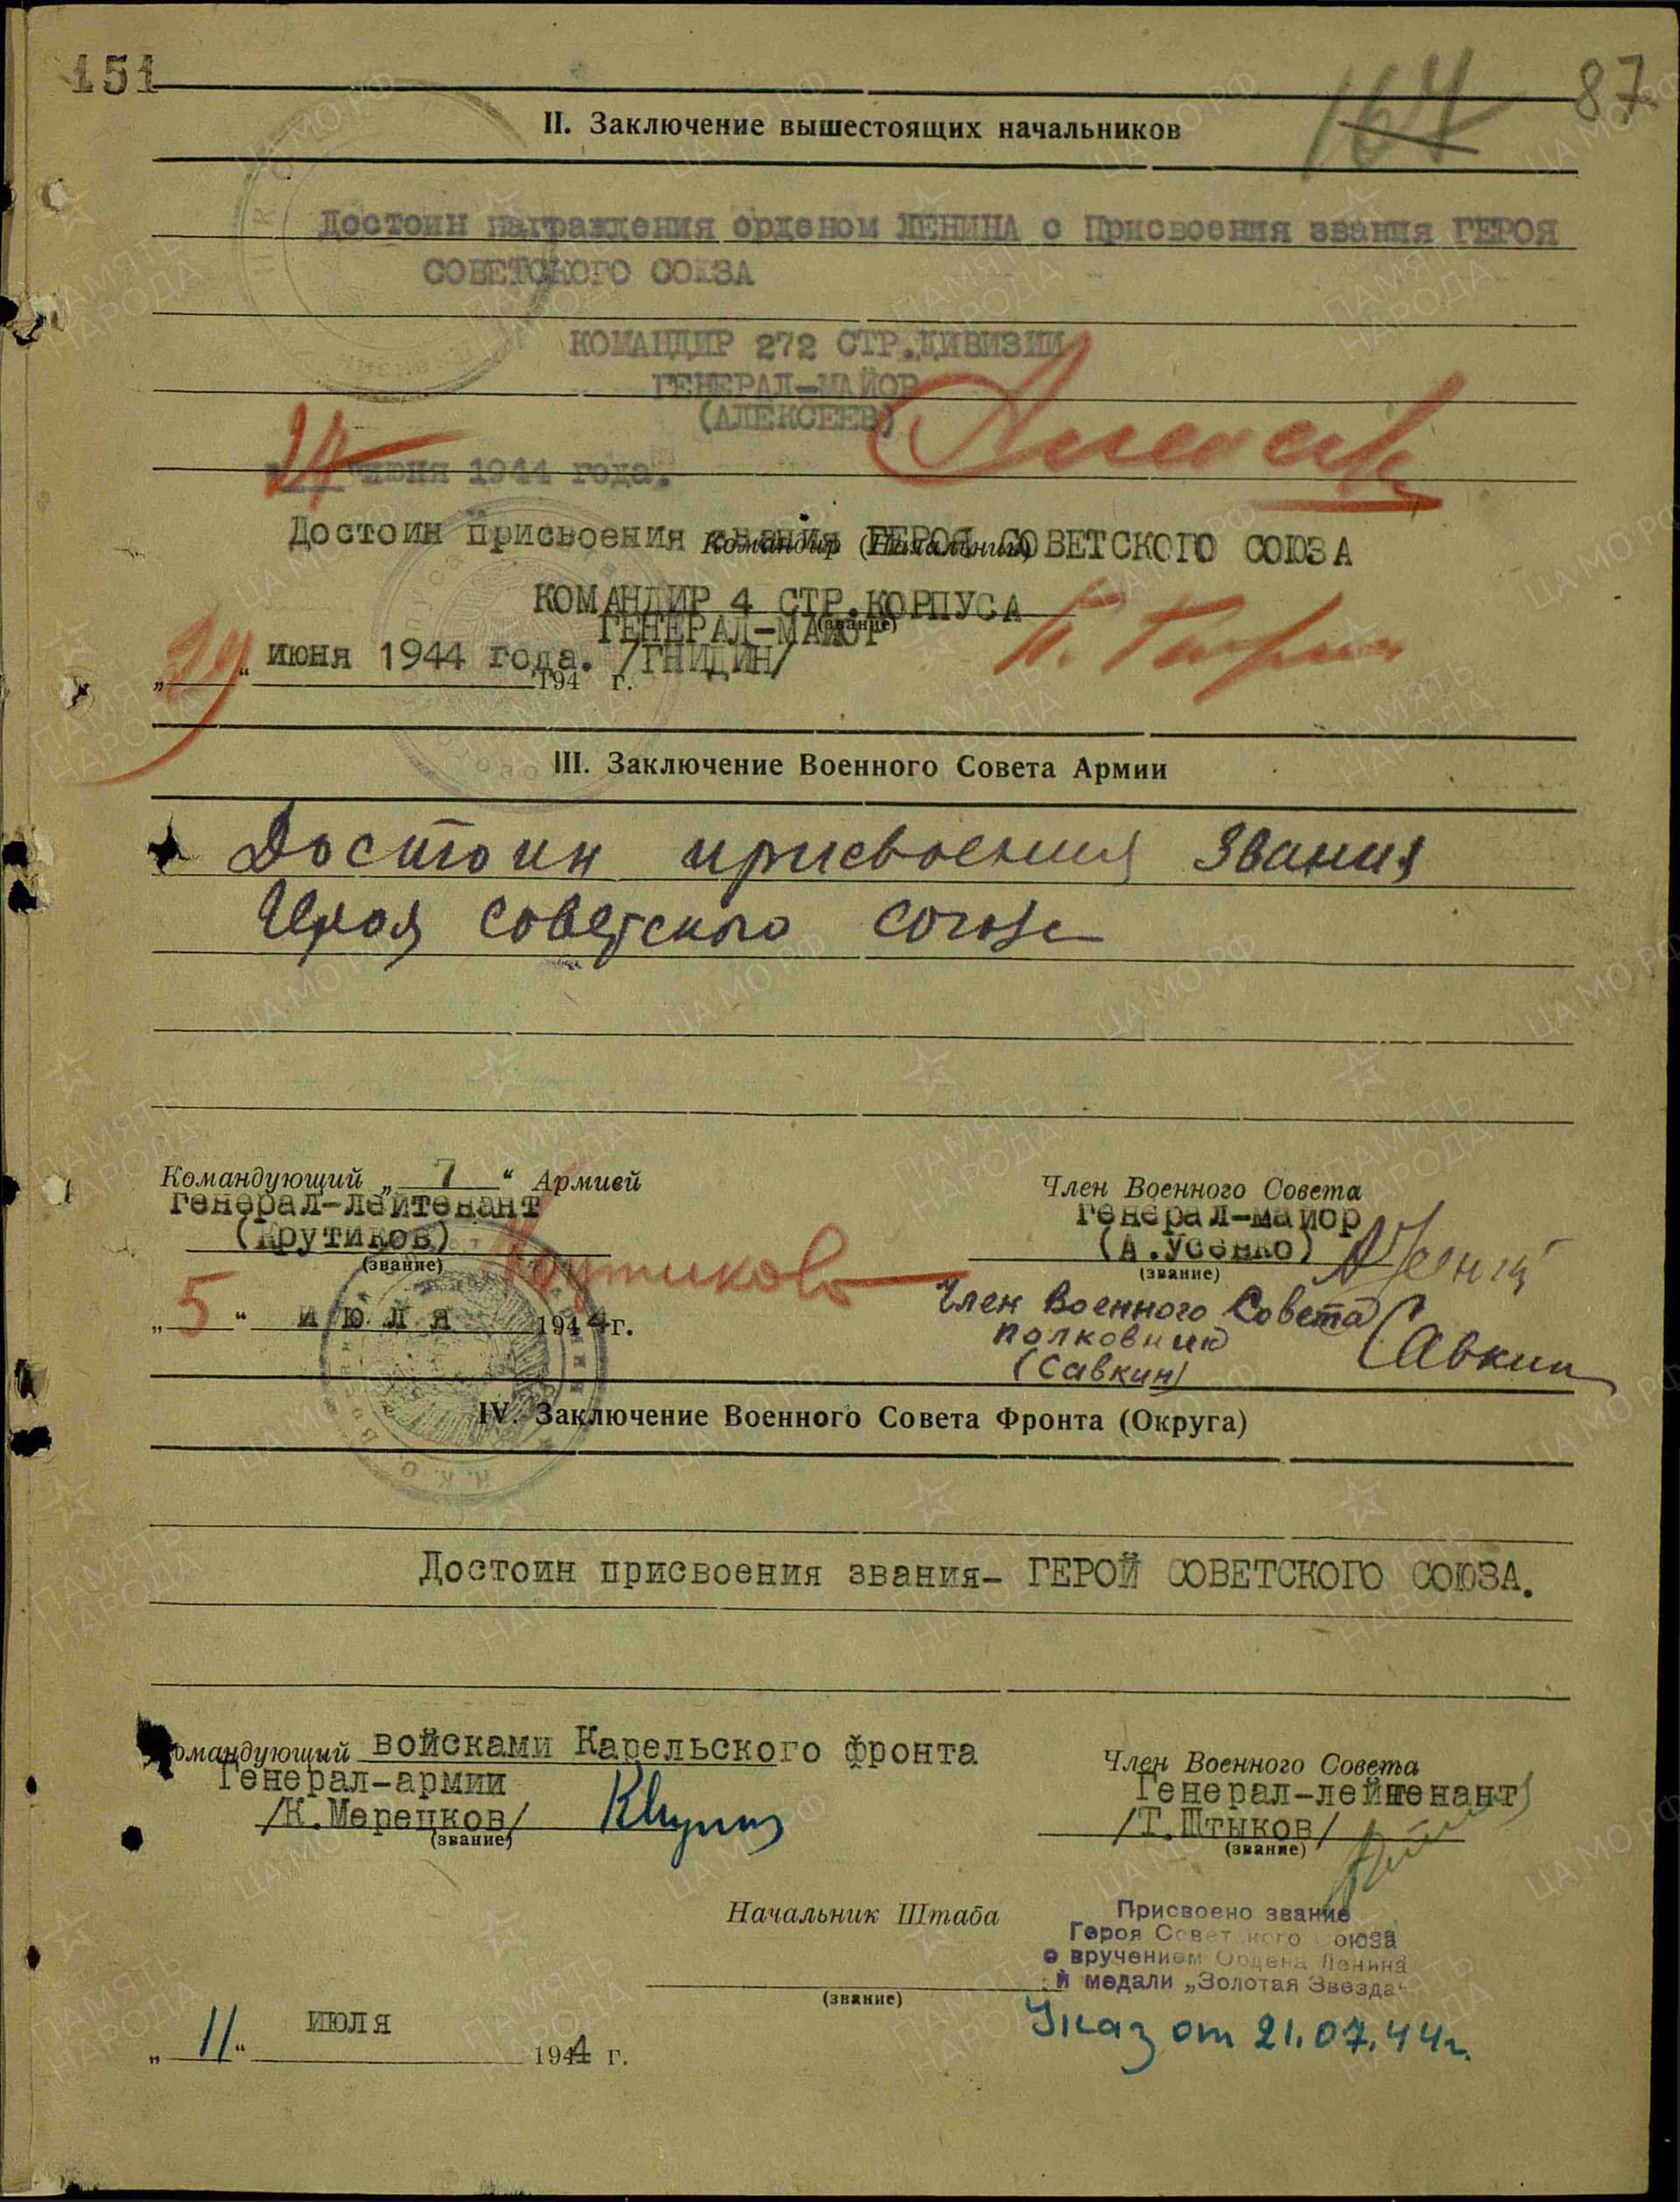 151
164 87
II. Заключение вышестоящих начальников
Достоин награждения орденом ЛЕНИНА с Присвоения звания ГЕРОЯ
СОВЕТСКОГО СОЮЗА
КОМАНДИР 272 СТР.ДИВИЗИИ
ГЕНЕРАЛ-МАЙОР
(АЛЕКСЕЕВ)
24 июня 1944 года.
Достоин присвоения звания ГЕРОЯ СОВЕТСКОГО СОЮЗА
Командир (Начальник)
КОМАНДИР 4 СТР.КОРПУСА
(звание)
ГЕНЕРАЛ-МАЙОР
„29“ июня 1944 года. /ГНИДИН/
194 г.
III. Заключение Военного Совета Армии
Достоин присвоения звания
Героя Советского Союза
Командующий „7“ Армией
Генерал-лейтенант
(Крутиков) Крутиков
(звание)
„5“ июля 1944г.
Член Военного Совета
Генерал-майор
(А.Усенко)
(звание)
Член Военного Совета
полковник
(Савкин) Савкин
IV. Заключение Военного Совета Фронта (Округа)
Достоин присвоения звания- ГЕРОЙ СОВЕТСКОГО СОЮЗА.
Командующий войсками Карельского фронта
Генерал-армии
/К.Мерецков/
(звание)
Член Военного Совета
Генерал-лейтенант
/Т.Штыков/
(звание)
Начальник Штаба
(звание)
Присвоено звание
Героя Советского Союза
с вручением Ордена Ленина
и медали „Золотая Звезда“
Указ от 21.07.44г.
„11“ июля 1944 г.
ПАМЯТЬ НАРОДА
ЦА МО РФ